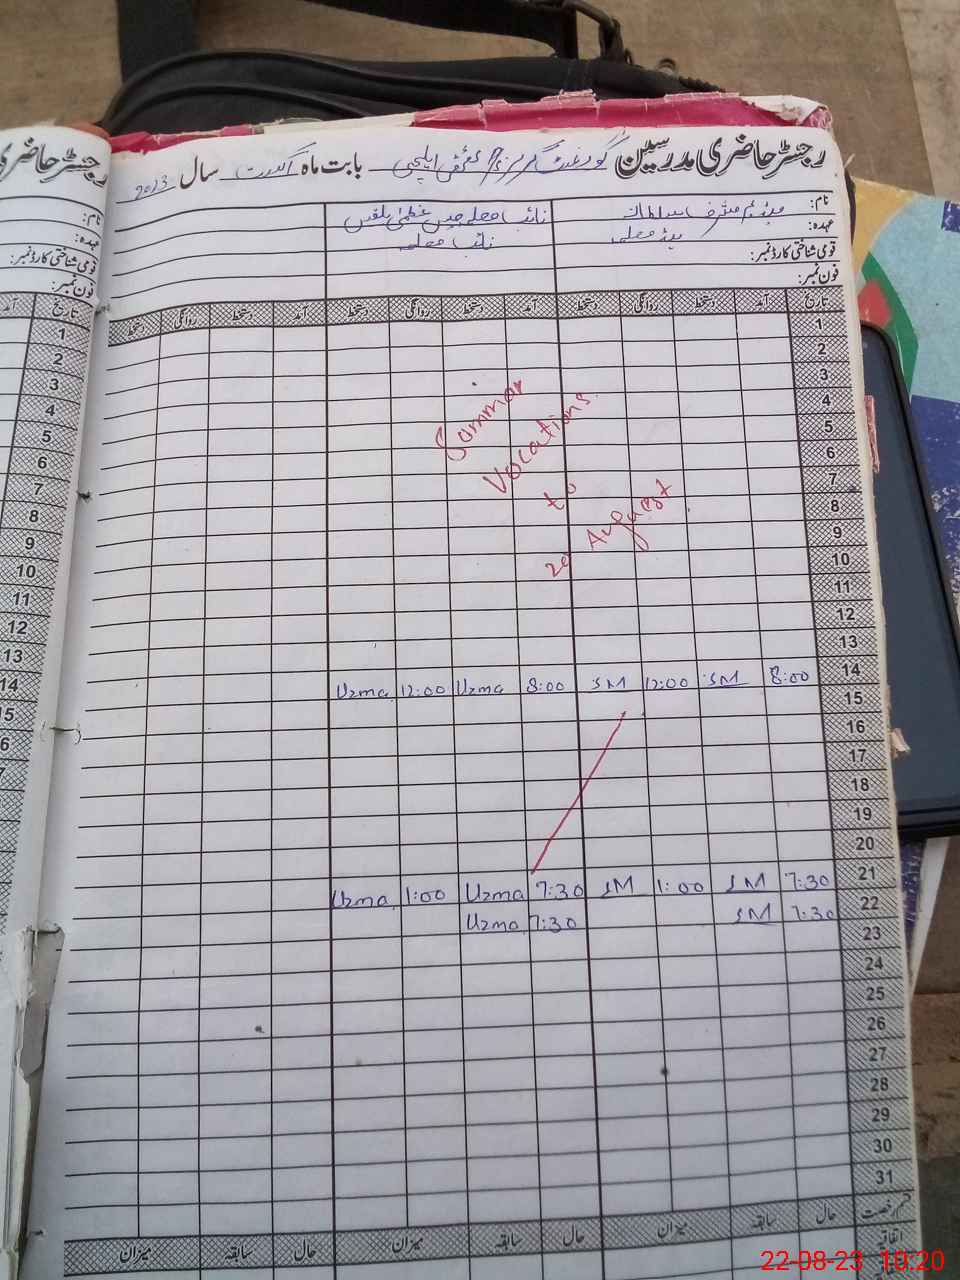 رجسٹر حاضری مدرسین گورنمنٹ گرلز بابت ماہ اگست سال 2023
نام:
عہدہ:
قومی شناختی کارڈ نمبر:
فون نمبر:
نائب معلمہ مس عظمیٰ بلقیس
ہیڈ معلمہ
نائب معلمہ
تاریخ آمد دستخط روانگی دستخط آمد دستخط روانگی دستخط آمد دستخط روانگی دستخط
1
2
3
4
5
6
7
8
9
10
11
12
13
14 8:00 SM 12:00 SM 8:00 Uzma 12:00 Uzma
15
16
17
18
19
20
21 7:30 SM 1:00 SM 7:30 Uzma 1:00 Uzma
22 7:30 SM 7:30 Uzma
23
24
25
26
27
28
29
30
31
Summar
Vocations
to
20 August
قسم رخصت حال سابقہ میزان حال سابقہ میزان حال سابقہ میزان
اتفاقیہ
رجسٹر حاضری
نام:
عہدہ:
قومی شناختی کارڈ نمبر:
فون نمبر:
تاریخ آمد
1
2
3
4
5
6
7
8
9
10
11
12
13
14
15
22-08-23 10:20